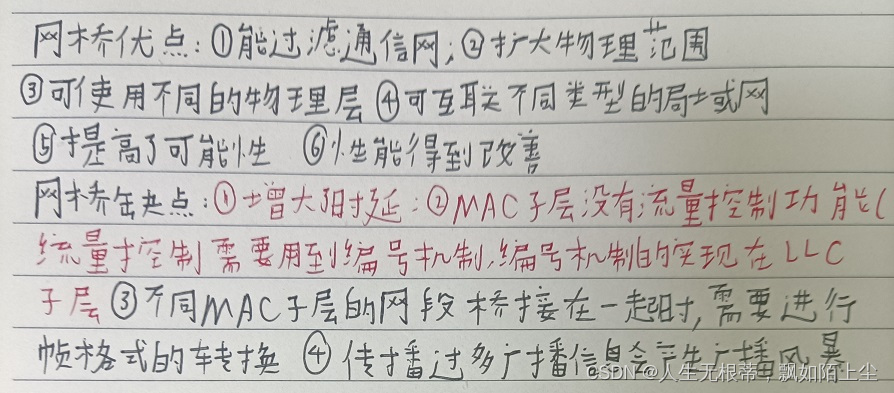 网桥优点:①能过滤通信网;②扩大物理范围
③可使用不同的物理层 ④可互联不同类型的局域网
⑤提高了可能性 ⑥性能得到改善
网桥缺点:①增大时延:②MAC子层没有流量控制功能(
流量控制需要用到编号机制,编号机制的实现在LLC
子层 ③不同MAC子层的网段桥接在一起时,需要进行
帧格式的转换 ④传播过多广播信息会产生广播风暴
CSDN @人生无根蒂,飘如陌上尘